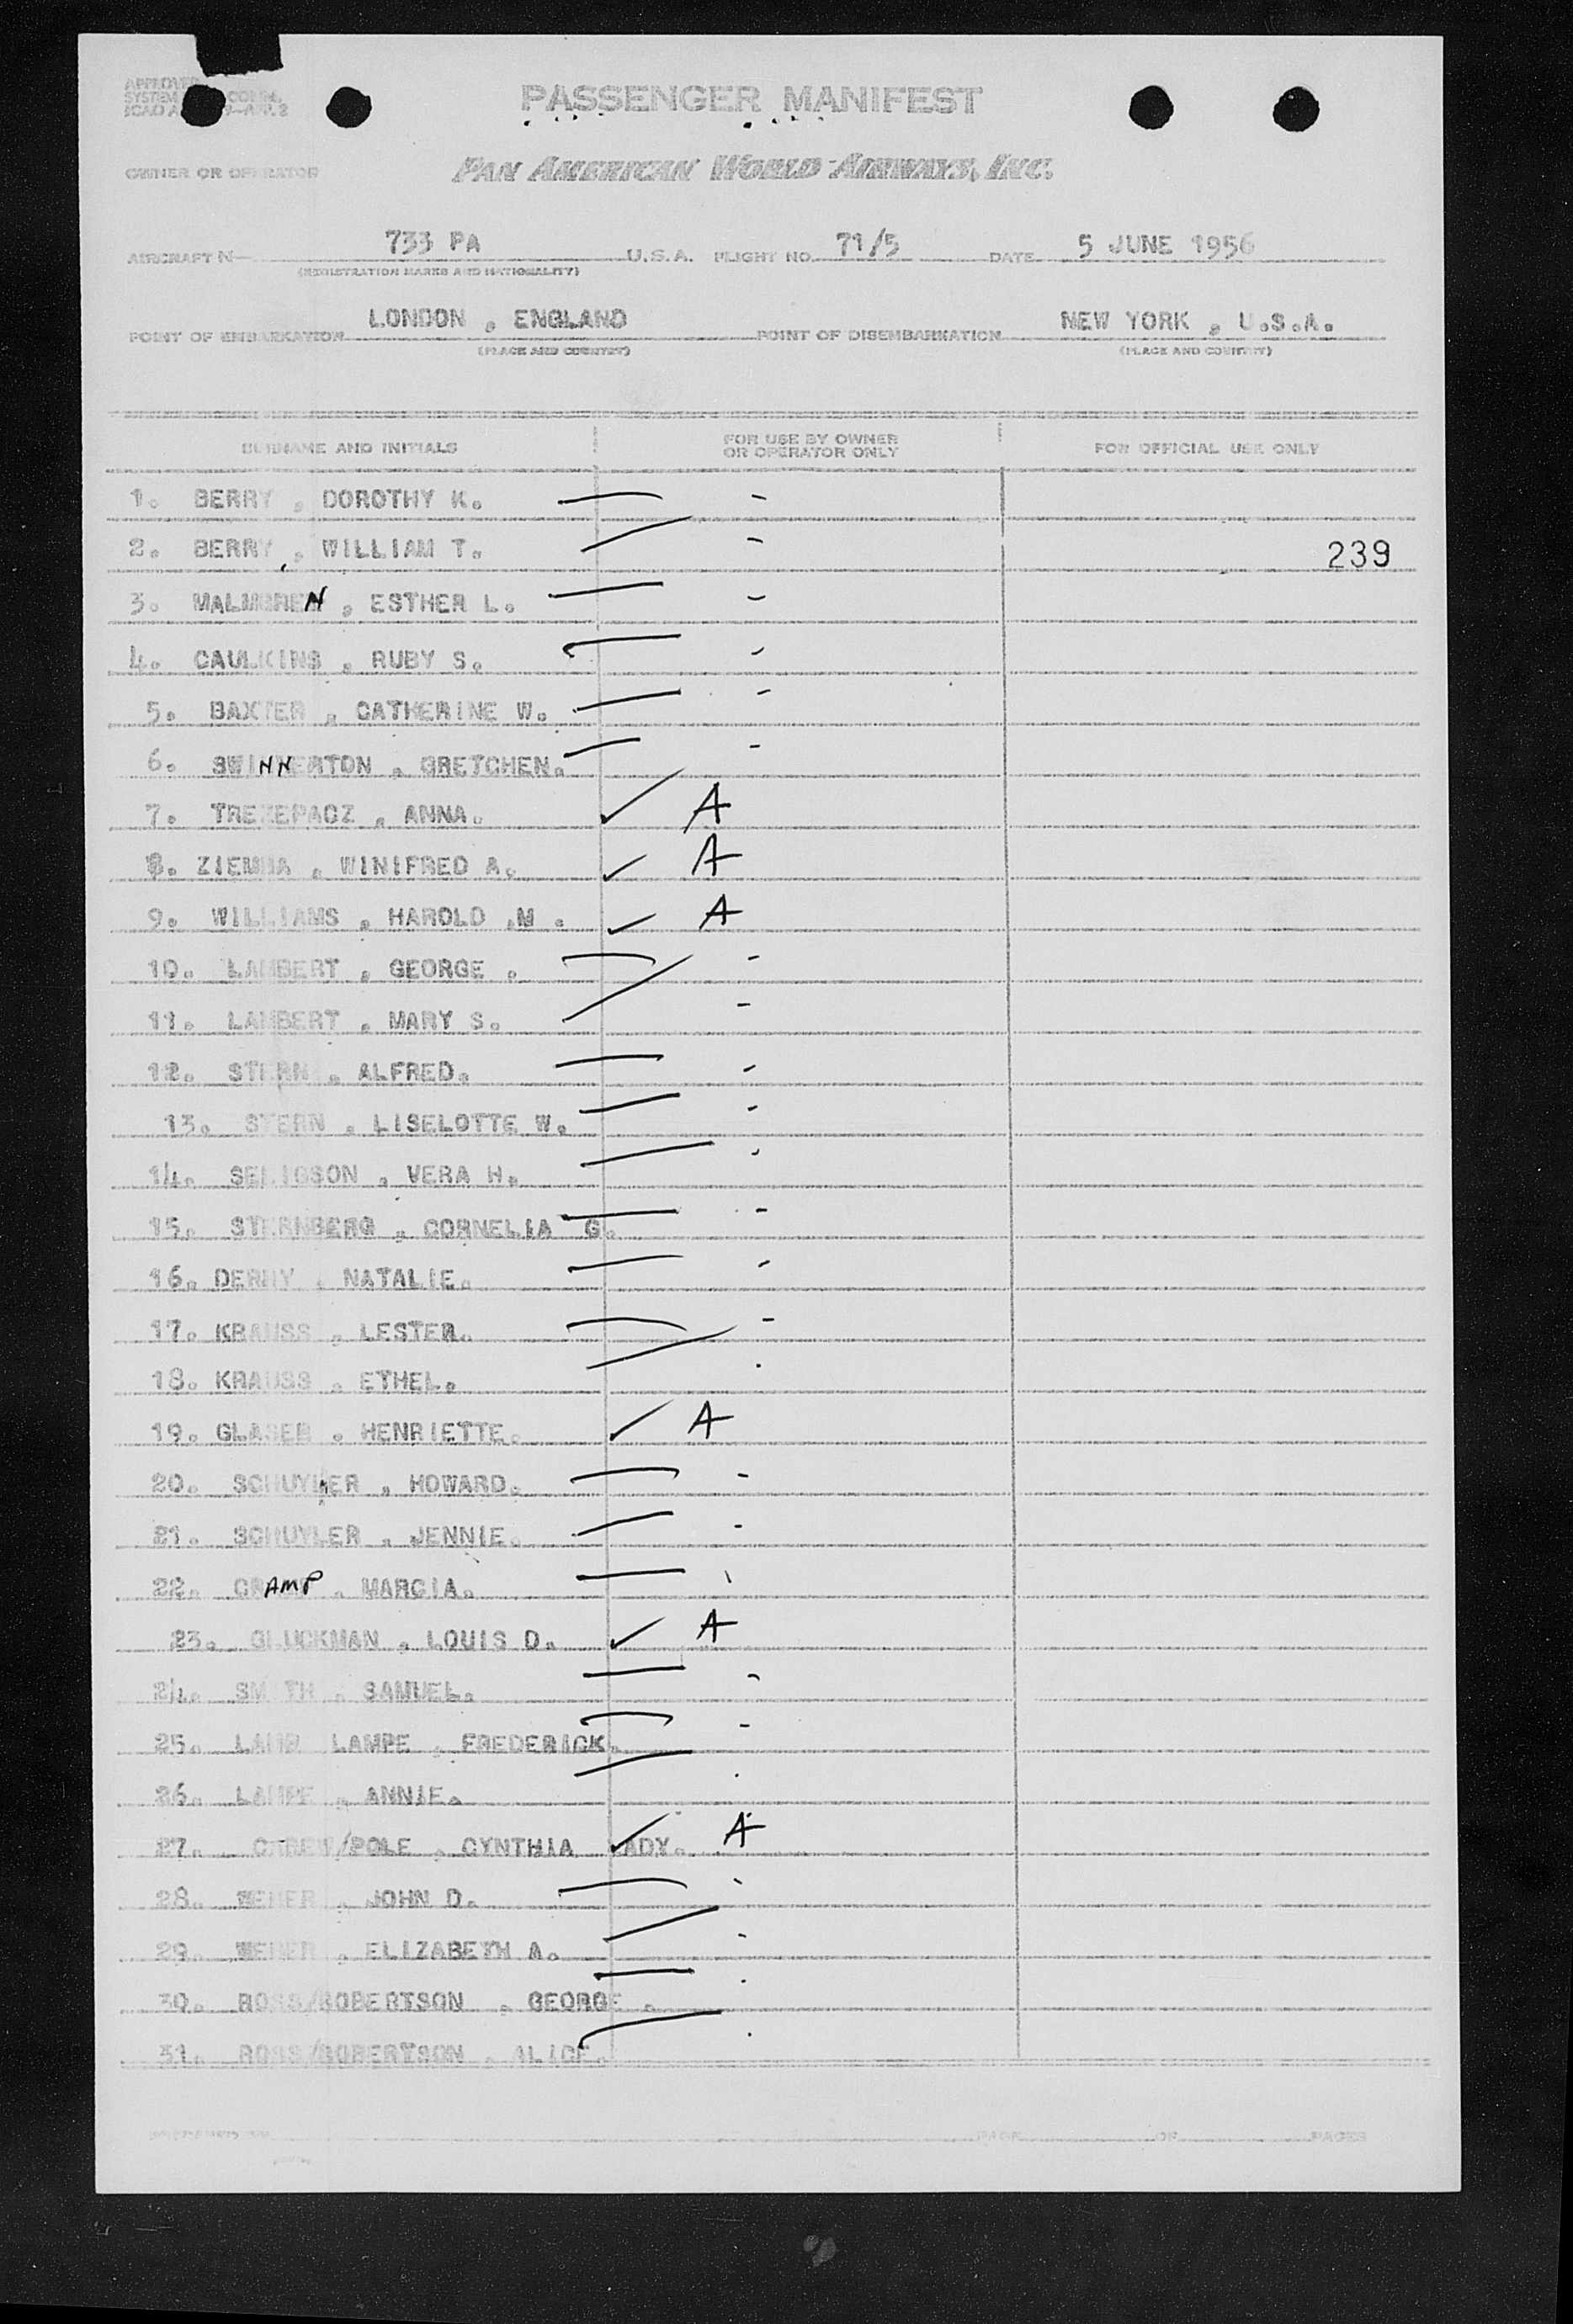 APPROVED
SYSTEM COMM.
PASSENGER MANIFEST
OWNER OR OPERATOR PAN AMERICAN WORLD AIRWAYS, INC.
AIRCRAFT N— 733 PA U.S.A. FLIGHT NO. 71/5 DATE 5 JUNE 1956
(REGISTRATION MARKS AND NATIONALITY)
POINT OF EMBARKATION LONDON , ENGLAND POINT OF DISEMBARKATION NEW YORK , U.S.A.
(PLACE AND COUNTRY) (PLACE AND COUNTRY)
SURNAME AND INITIALS FOR USE BY OWNER OR OPERATOR ONLY FOR OFFICIAL USE ONLY
1. BERRY , DOROTHY K. -
2. BERRY , WILLIAM T. - 239
3. MALMGREN , ESTHER L. -
4. CAULKINS , RUBY S. -
5. BAXTER , CATHERINE W. -
6. SWINNERTON , GRETCHEN. -
7. TREZEPACZ , ANNA. ✓ A
8. ZIEMBA , WINIFRED A. ✓ A
9. WILLIAMS , HAROLD .M . ✓ A
10. LAMBERT , GEORGE . -
11. LAMBERT , MARY S. -
12. STERN , ALFRED. -
13. STERN , LISELOTTE W. -
14. SELIGSON , VERA H. -
15. STERNBERG , CORNELIA G. -
16. DERBY , NATALIE. -
17. KRAUSS , LESTER. -
18. KRAUSS , ETHEL. -
19. GLASER , HENRIETTE. ✓ A
20. SCHUYLER , HOWARD. -
21. SCHUYLER , JENNIE. -
22. CRAMP , MARCIA.
23. GLUCKMAN , LOUIS D. ✓ A
24. SMITH , SAMUEL. -
25. LAMB LAMPE , FREDERICK. -
26. LAMPE , ANNIE.
27. CAREW/POLE , CYNTHIA LADY. ✓ A
28. , JOHN D. -
29. , ELIZABETH A. -
30. ROSS/ROBERTSON , GEORGE .
31. ROSS/ROBERTSON , ALICE.
PAGE OF PAGES